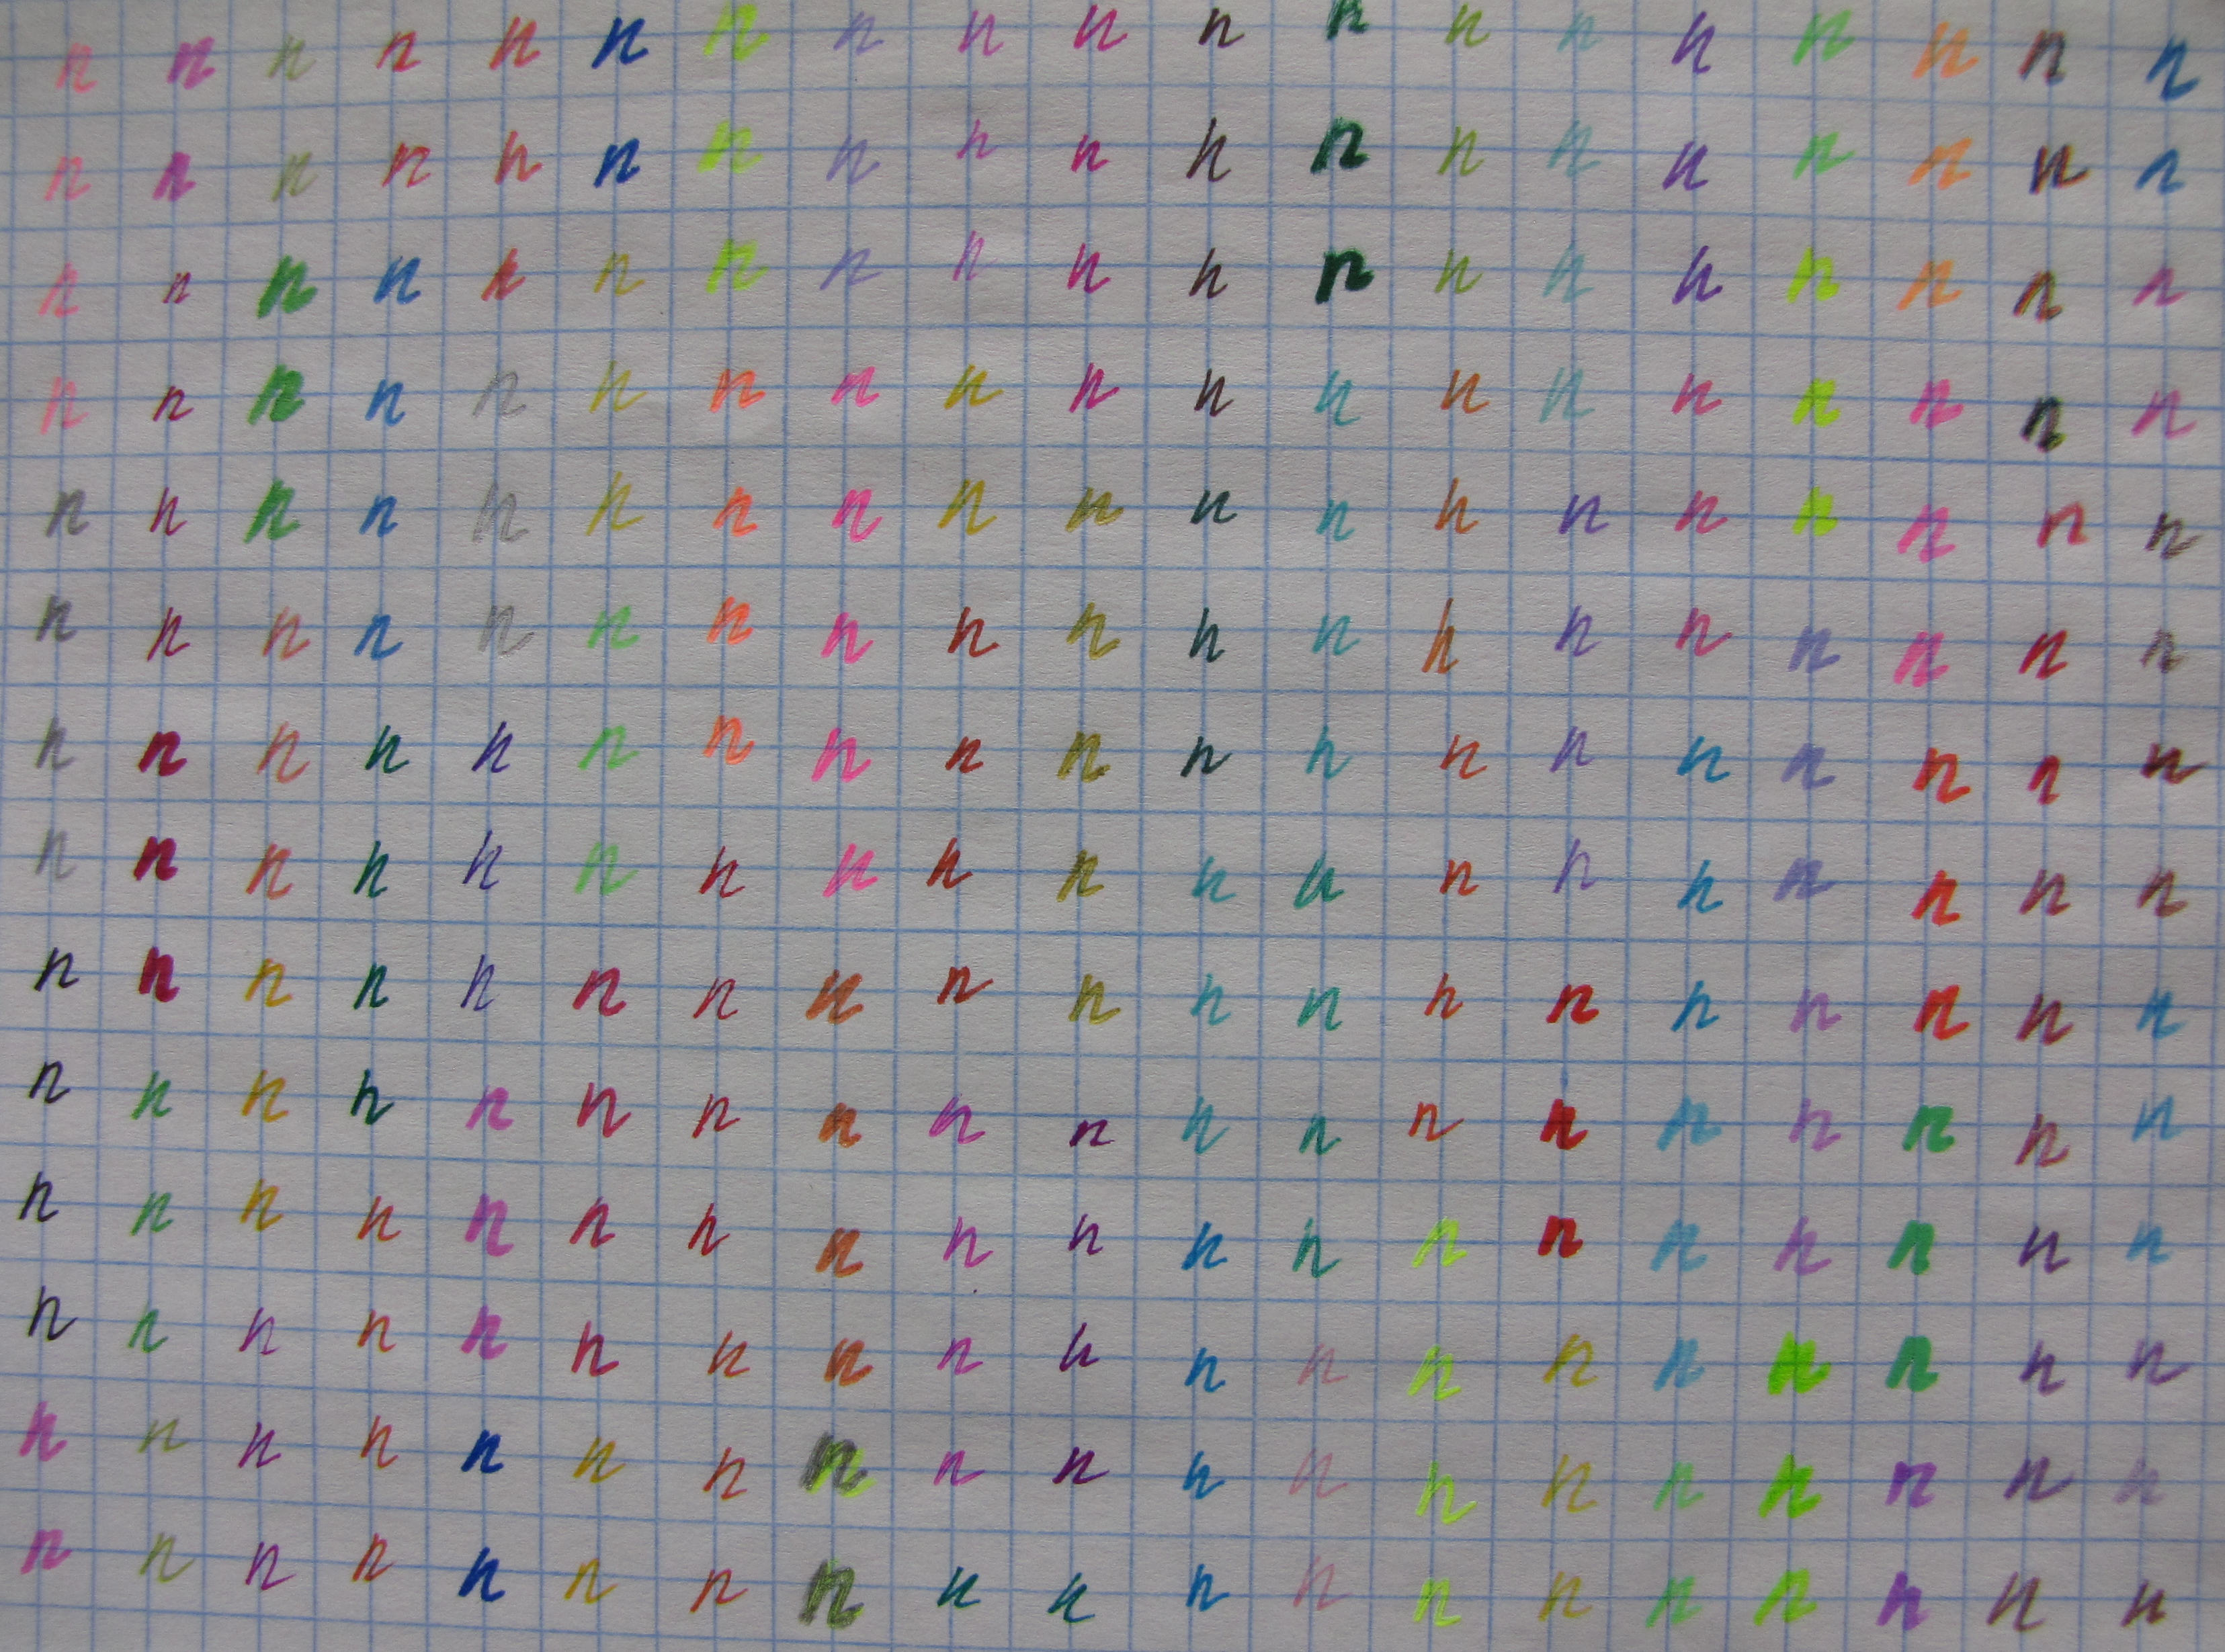 n n n n n n n n n n n n n n n n n n n
n n n n n n n n n n n n n n n n n n n
n n n n n n n n n n n n n n n n n n n
n n n n n n n n n n n n n n n n n n n
n n n n n n n n n n n n n n n n n n n
n n n n n n n n n n n n n n n n n n n
n n n n n n n n n n n n n n n n n n n
n n n n n n n n n n n n n n n n n n n
n n n n n n n n n n n n n n n n n n n
n n n n n n n n n n n n n n n n n n n
n n n n n n n n n n n n n n n n n n n
n n n n n n n n n n n n n n n n n n n
n n n n n n n n n n n n n n n n n n n
n n n n n n n n n n n n n n n n n n n